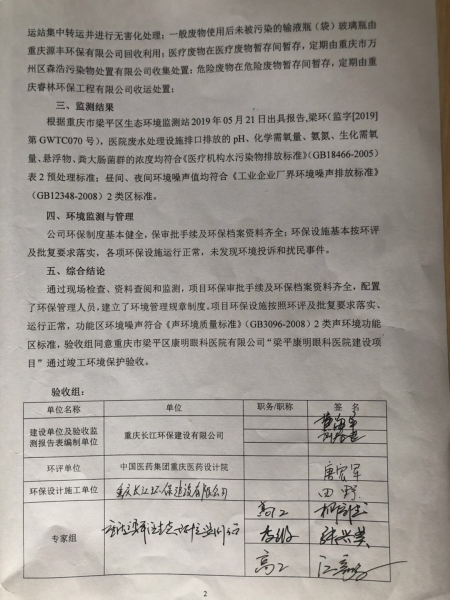 运站集中转运并进行无害化处理；一般废物使用后未被污染的输液瓶（袋）玻璃瓶由
重庆源丰环保有限公司回收利用；医疗废物在医疗废物暂存间暂存，定期由重庆市万
州区森浩污染物处置有限公司收集处置；危险废物在危险废物暂存间暂存，定期由重
庆睿林环保工程有限公司收运处置；
三、监测结果
根据重庆市梁平区生态环境监测站 2019 年 05 月 21 日出具报告,梁环(监字[2019]
第 GWTC070 号)，医院废水处理设施排口排放的 pH、化学需氧量、氨氮、生化需氧
量、悬浮物、粪大肠菌群的浓度均符合《医疗机构水污染物排放标准》(GB18466-2005)
表 2 预处理标准；昼间、夜间环境噪声值均符合《工业企业厂界环境噪声排放标准》
（GB12348-2008）2 类区标准。
四、环境监测与管理
公司环保制度基本健全，保审批手续及环保档案资料齐全；环保设施基本按环评
及批复要求落实，各项环保设施运行正常，未发现环境投诉和扰民事件。
五、综合结论
通过现场检查、资料查阅和监测，项目环保审批手续及环保档案资料齐全，配置
了环保管理人员，建立了环境管理规章制度。项目环保设施按照环评及批复要求落实、
运行正常，功能区环境噪声符合《声环境质量标准》(GB3096-2008) 2 类声环境功能
区标准，验收组同意重庆市梁平区康明眼科医院有限公司“梁平康明眼科医院建设项
目”通过竣工环境保护验收。
验收组：
单位名称 单位 职务/职称 签 名
建设单位及验收监
测报告表编制单位 重庆长江环保建设有限公司
环评单位 中国医药集团重庆医药设计院 唐宏军
环保设计施工单位 重庆长江环保建设有限公司 田野
专家组
高工
高工
2